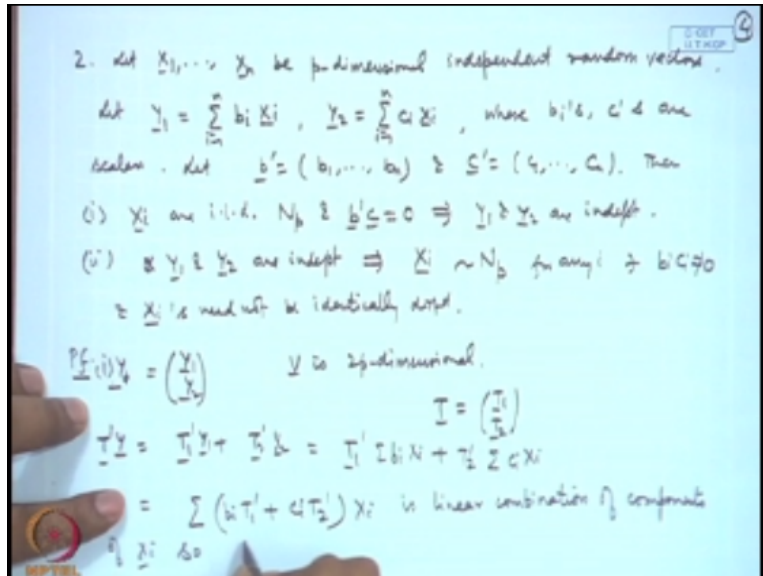 ④
© CET
I.I.T. KGP
2. Let X1,..., Xn be p-dimensional independent random vectors.
Let Y1 = Σ_{i=1}^{n} bi Xi , Y2 = Σ_{i=1}^{n} ci Xi , where bi's, ci's are
scalars. Let b' = (b1,..., bn) & c' = (c1,..., cn). Then
(i) Xi are i.i.d. Np & b'c = 0 ⇒ Y1 & Y2 are indept.
(ii) Y1 & Y2 are indept ⇒ Xi ~ Np for any i ∋ bi ci ≠ 0
& Xi's need not be identically distd.
Pf. (i) Y = (Y1 Y2) Y is 2p-dimensional.
T = (T1 T2)
T'Y = T1'Y1 + T2'Y2 = T1' Σ bi Xi + T2' Σ ci Xi
= Σ (bi T1' + ci T2') Xi is linear combination of components
of Xi so
NPTEL